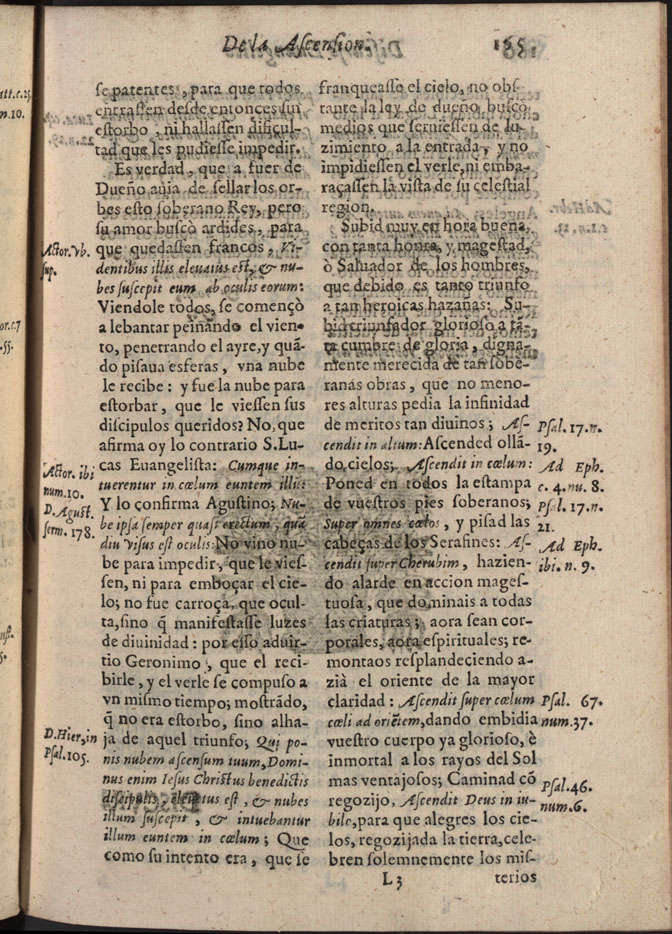 De la Ascension. 155
se patentes, para que todos
entrassen desde entonces sin
estorbo, ni hallassen dificul-
tad que les pudiesse impedir.
Es verdad, que a fuer de
Dueño auia de sellar los or-
bes esto soberano Rey, pero
su amor buscò ardides, para
que quedassen francos, Vi-
dentibus illis eleuatus est, & nu-
bes suscepit eum ab oculis eorum:
Viendole todos, se començò
a lebantar peinando el vien-
to, penetrando el ayre, y quã-
do pisaua esferas, vna nube
le recibe: y fue la nube para
estorbar, que le viessen sus
discipulos queridos? No, que
afirma oy lo contrario S. Lu-
cas Euangelista: Cumque in-
tuerentur in cœlum euntem illũ:
Y lo confirma Agustino; Nu-
be ipsa semper quasi erectum, quã
diu visus est oculis: No vino nu-
be para impedir, que le vies-
sen, ni para emboçar el cie-
lo; no fue carroça, que ocul-
ta, sino q̃ manifestasse luzes
de diuinidad: por esso aduir-
tio Geronimo, que el reci-
birle, y el verle se compuso a
vn mismo tiempo; mostrãdo,
q̃ no era estorbo, sino alha-
ja de aquel triunfo; Qui po-
nis nubem ascensum tuum, Domi-
nus enim Iesus Christus benedictis
discipulis, eleuatus est, & nubes
illum suscepit, & intuebantur
illum euntem in cœlum; Que
como su intento era, que se
Actor. vb.
sup.
Actor. ibi
num. 10.
D. Agust.
serm. 178.
D. Hier. in
Psal. 105.
franqueasse el cielo, no obs-
tante la ley de dueño, buscò
medios que seruiessen de lu-
zimiento a la entrada, y no
impidiessen el verle, ni emba-
raçassen la vista de su celestial
region.
Subid muy en hora buena,
con tanta honra, y magestad,
ò Saluador de los hombres,
que debido es tanto triunfo
a tan heroicas hazañas: Su-
bid triunfador glorioso a tã-
ta cumbre de gloria, digna-
mente merecida de tan sobe-
ranas obras, que no meno-
res alturas pedia la infinidad
de meritos tan diuinos; As-
cendit in altum: Ascended ollã-
do, cielos; Ascendit in cœlum:
Poned en todos la estampa
de vuestros pies soberanos;
Super omnes cœlos, y pisad las
cabeças de los Serafines: As-
cendit super Cherubim, hazien-
do alarde en accion mages-
tuosa, que dominais a todas
las criaturas; aora sean cor-
porales, aora espirituales; re-
montaos resplandeciendo a-
zià el oriente de la mayor
claridad: Ascendit super cœlum
cœli ad oriẽtem, dando embidia
vuestro cuerpo ya glorioso, è
inmortal a los rayos del Sol
mas ventajosos; Caminad cõ
regozijo, Ascendit Deus in iu-
bile, para que alegres los cie-
los, regozijada la tierra, cele-
bren solemnemente los mis-
Psal. 17. n.
19.
Ad Eph.
c. 4. nu. 8.
Psal. 17. n.
21.
Ad Eph.
ibi. n. 9.
Psal. 67.
num. 37.
Psal. 46.
num. 6.
L3 terios